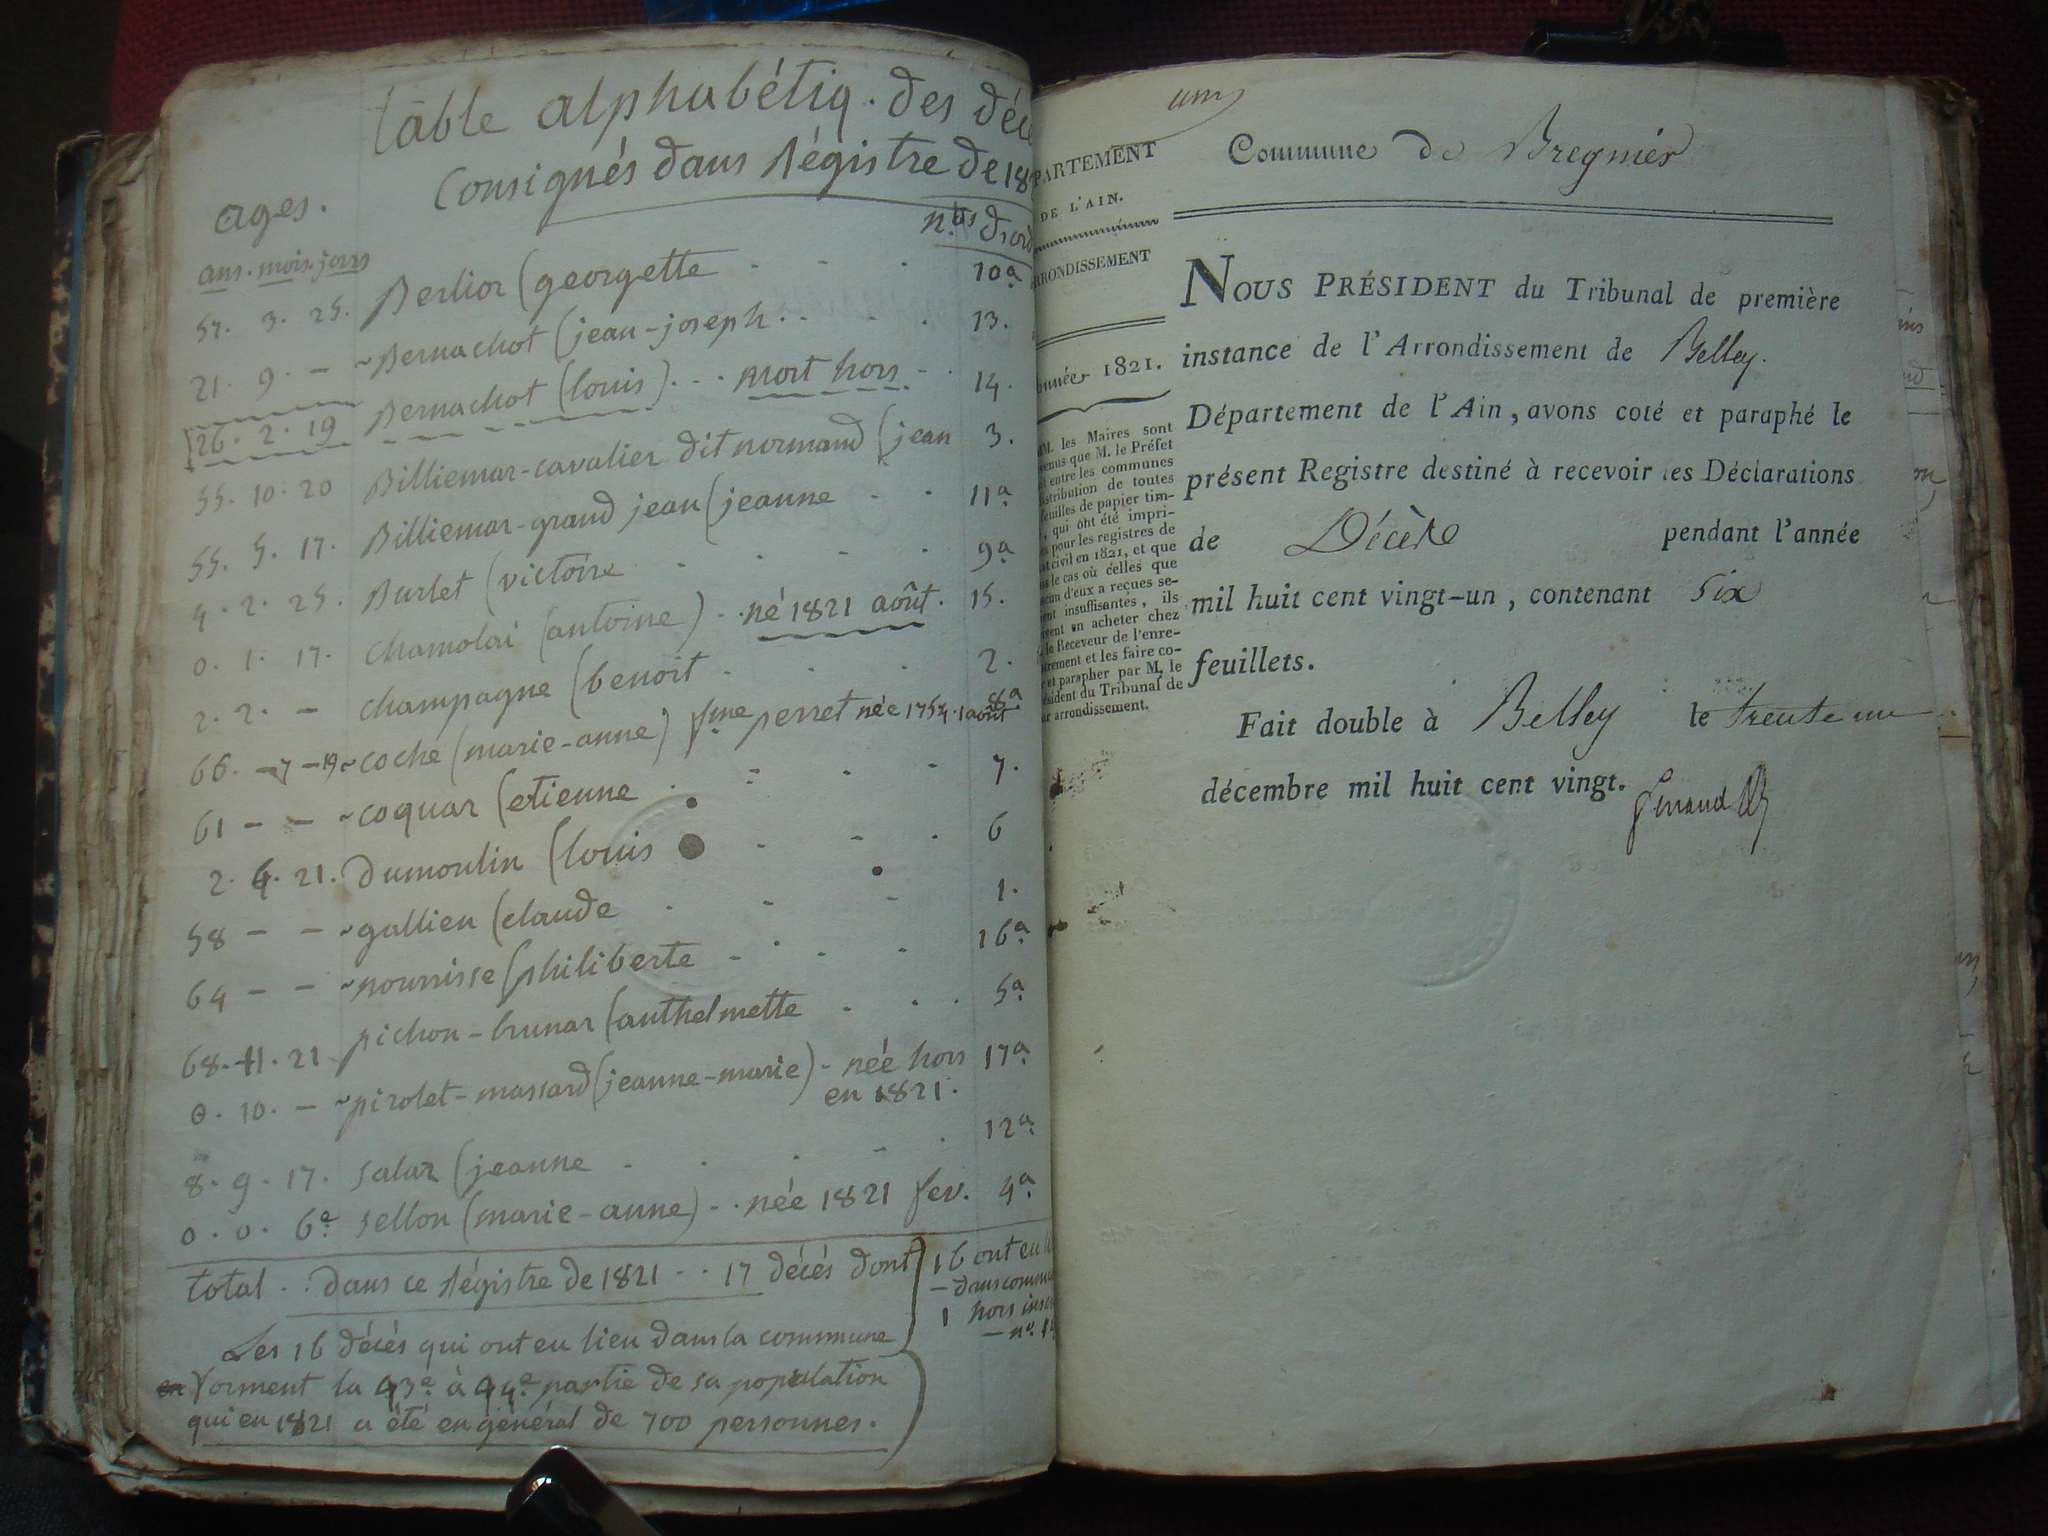 table alphabétiq. des déc
Consignés dans Régistre de 18
ages.
n.os d'ord
ans. mois. jours
57. 3. 25. Berlior (georgette - - - 10a
21. 9. - ~ Bernachot (jean-joseph . . - . 13.
26. 2. 19 Bernachot (louis) . - . mort hors - - 14.
55. 10. 20 Billiemar-cavalier dit normand (jean 3.
55. 5. 17. Billiemar-grand jean (jeanne - - 11a
4. 2. 25. Burlet (victoire . - - . 9a
0. 1. 17. chamolai (antoine) - . né 1821 août. 15.
2. 2. - champagne (benoit - . - . 2.
66. - 7 - 19 ~ coché (marie-anne) fme perret née 1754. 1 août 8a
61 - - ~ coquar (etienne . - . - 7.
2. 4. 21. dumoulin (louis - - . 6
58 - - ~ gallien (claude . - - 1.
64 - - ~ nourrisse (philiberte - . - . 16a
68. 11. 21 pichon-brunar (anthelmette . . . 5a
0. 10. - ~ pirolet-massard (jeanne-marie) - née hors 17a
en 1821.
8. 9. 17. salar (jeanne - . - - . 12a
0. 0. 6e sellon (marie-anne) - . née 1821 fev. 4a
total . . dans ce Régistre de 1821 - . 17 décés dont
16 ont eu
- dans comm
1 hors
- n°. 14
Les 16 décés qui ont eu lieu dans la commune
forment la 43e à 44e partie de sa population
qui en 1821 a été en général de 700 personnes.
un
PARTEMENT
DE L'AIN.
RRONDISSEMENT
année 1821.
M. les Maires sont
venus que M. le Préfet
entre les communes
stribution de toutes
feuilles de papier tim-
, qui ont été impri-
s pour les registres de
at civil en 1821, et que
ns le cas où celles que
cun d'eux a reçues se-
ent insuffisantes, ils
vent en acheter chez
le Receveur de l'enre-
trement et les faire co-
et parapher par M. le
résident du Tribunal de
ur arrondissement.
Commune de Bregnier
NOUS PRÉSIDENT du Tribunal de première
instance de l'Arrondissement de Belley.
Département de l'Ain, avons coté et paraphé le
présent Registre destiné à recevoir les Déclarations
de Décès pendant l'année
mil huit cent vingt-un, contenant six
feuillets.
Fait double à Belley le trente un
décembre mil huit cent vingt.